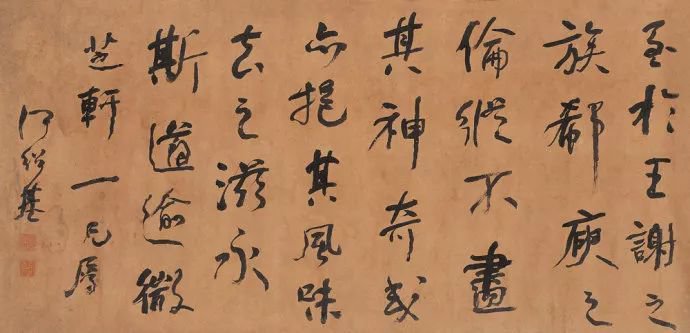 至於王謝之
族郗庾之
倫縱不盡
其神奇咸
亦挹其風味
去之滋永
斯道逾微
芝軒一兄屬
何紹基